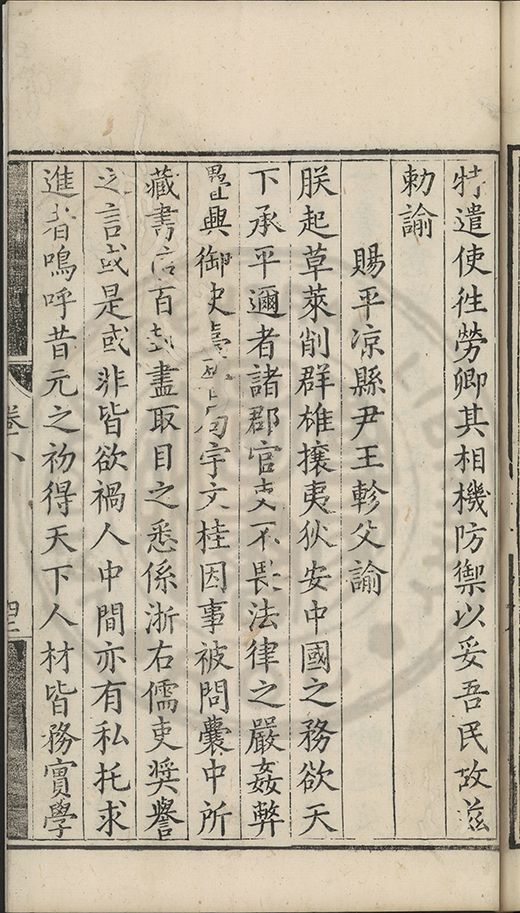 特遣使徃勞卿其相機防禦以妥吾民故兹
勅諭
賜平凉縣尹王軫父諭
朕起草萊削群雄攘夷狄安中國之務欲天
下承平邇者諸郡官吏不畏法律之嚴姦弊
疊興御史臺宇文桂因事被問囊中所
藏書信百封盡取目之悉係浙右儒吏奬譽
之言或是或非皆欲禍人中間亦有私托求
進者嗚呼昔元之初得天下人材皆務實學
卷八